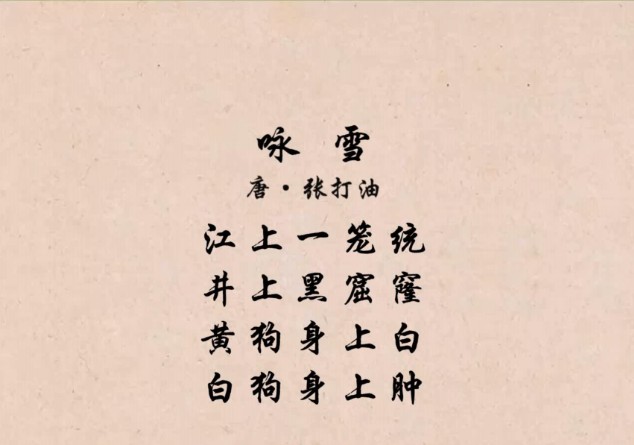 咏雪
唐·张打油
江上一笼统
井上黑窟窿
黄狗身上白
白狗身上肿